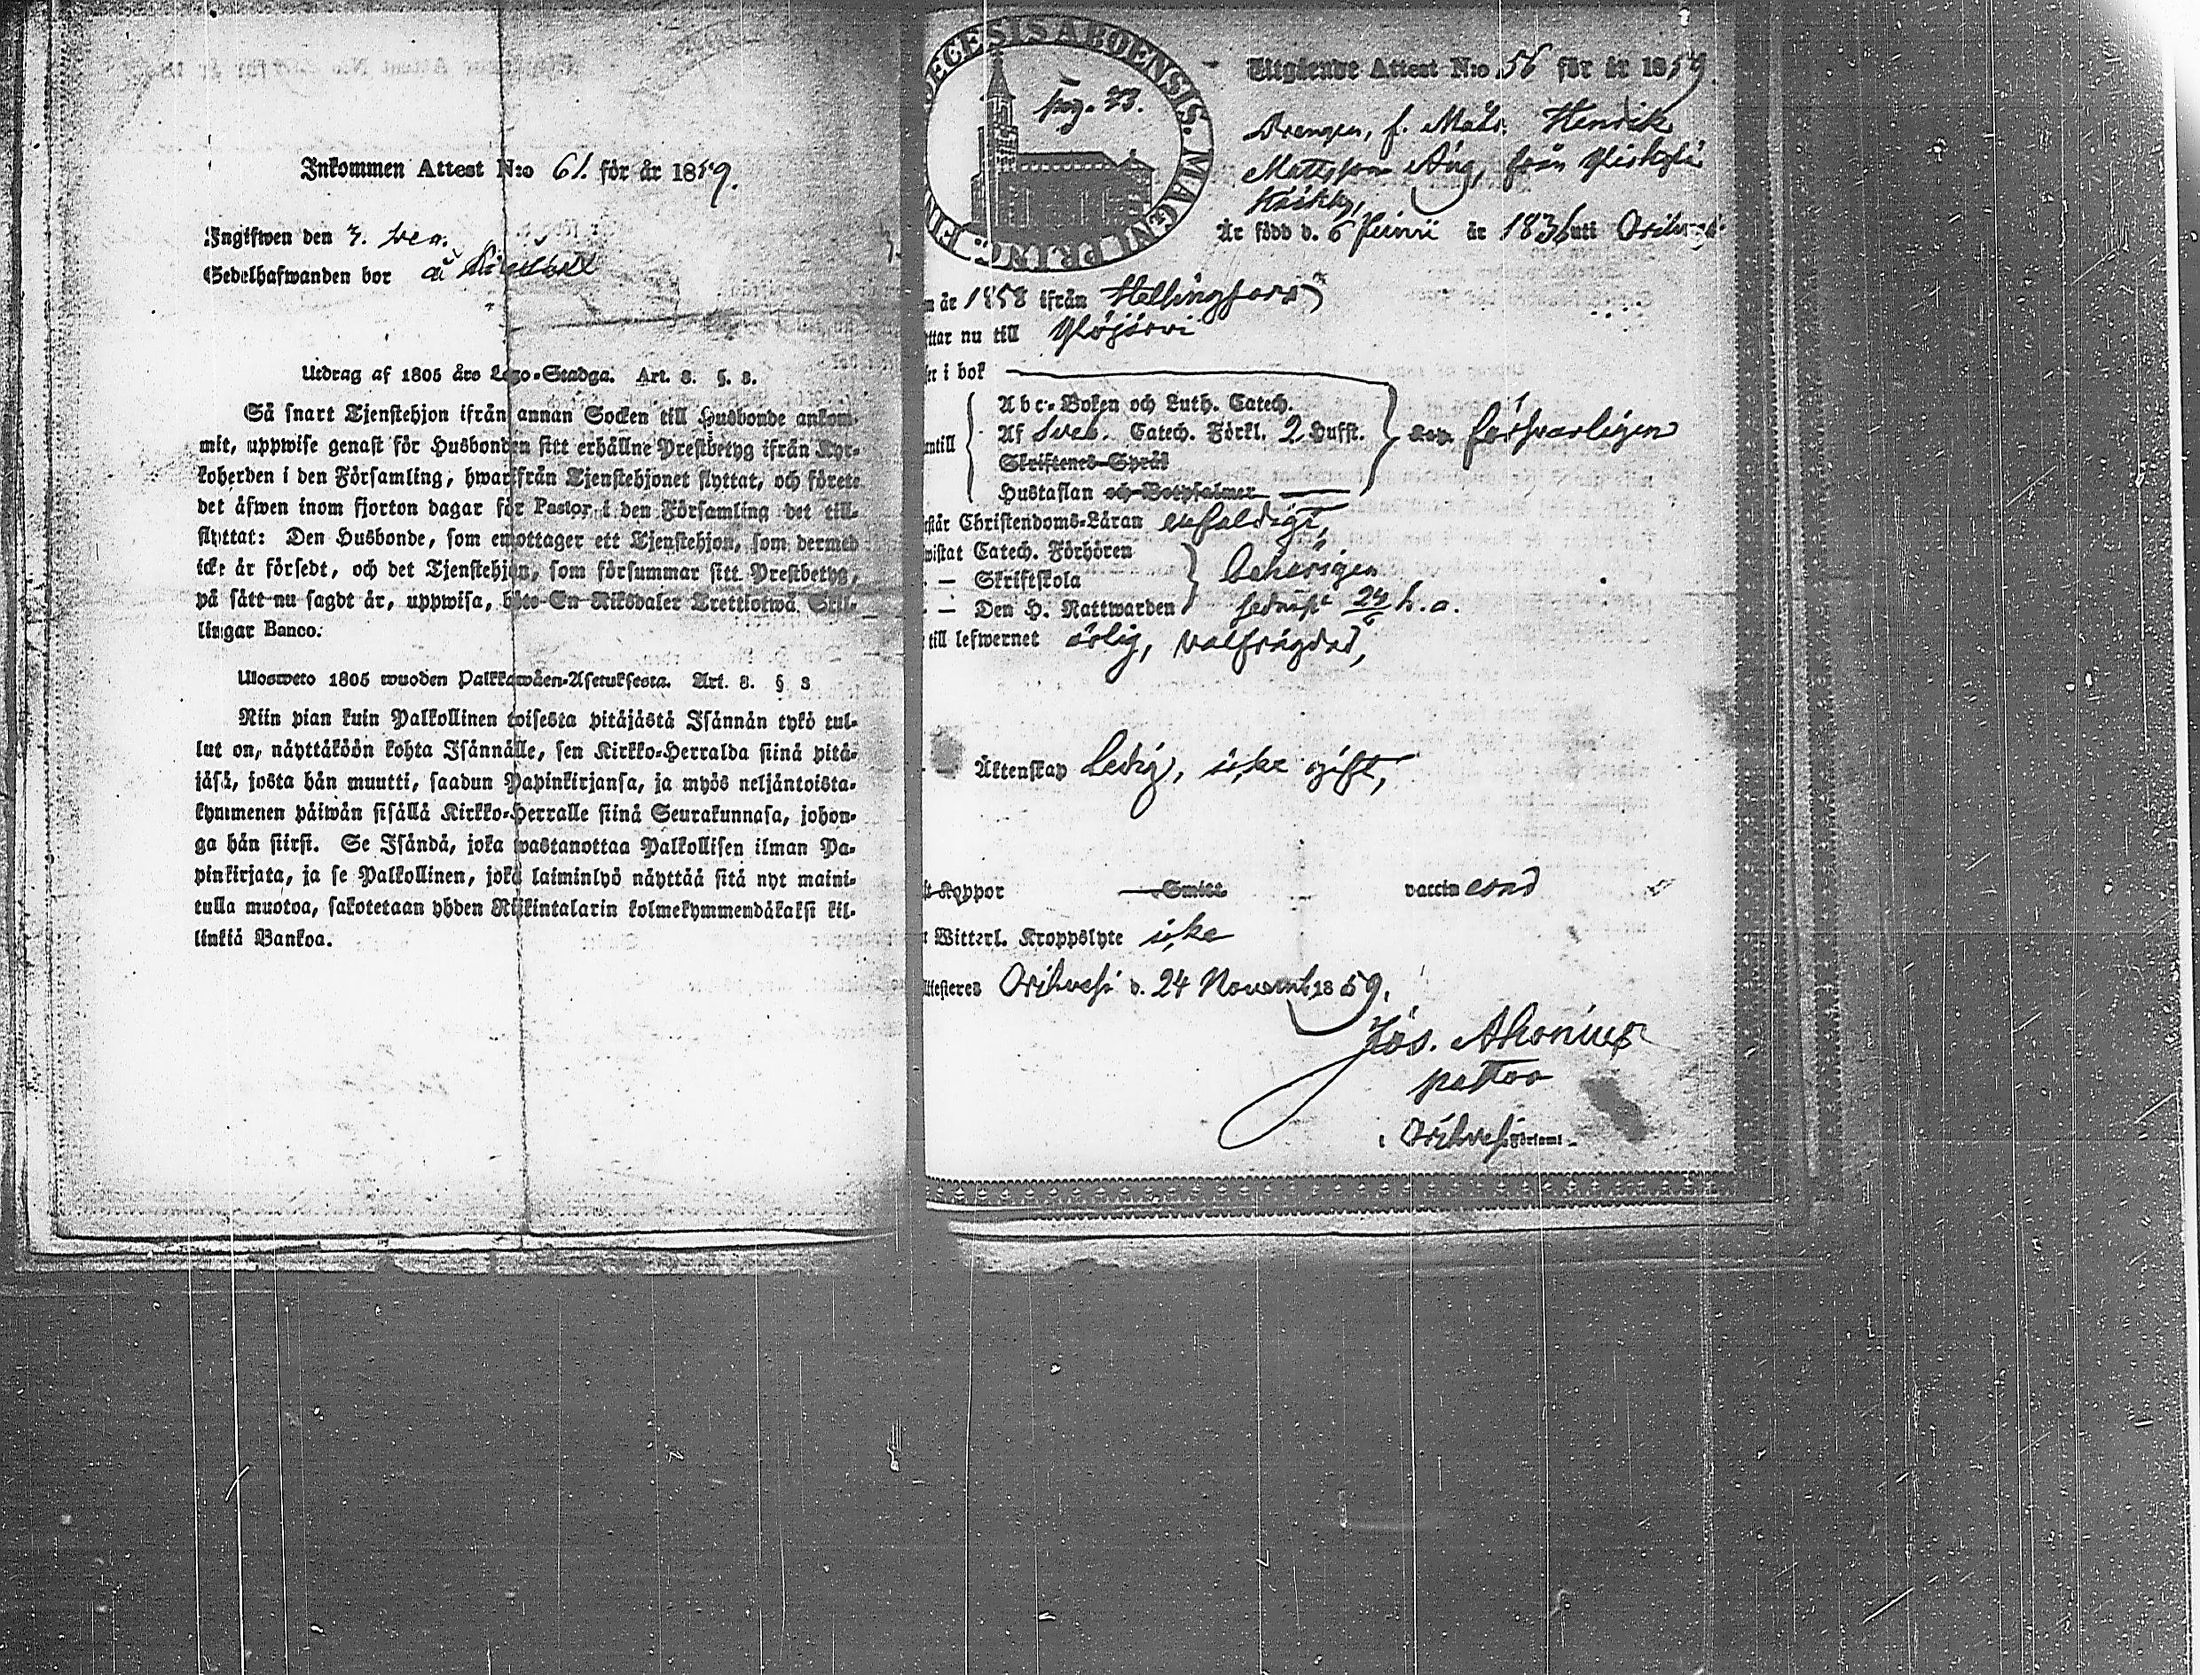 Inkommen Attest N:o 61. för år 1859.
Ingifwen den 3.
Sedelhafwanden bor å
Utdrag af 1805 års Lego-Stadga. Art. 8. §. 3.
Så snart Tjenstehjon ifrån annan Socken till Husbonde ankom-
mit, uppwise genast för Husbonden sitt erhållne Prestbetyg ifrån Kyr-
koherden i den Församling, hwarifrån Tjenstehjonet flyttat, och förete
det äfwen inom fjorton dagar för Pastor i den Församling det till-
flyttat: Den Husbonde, som emottager ett Tjenstehjon, som dermed
icke är försedt, och det Tjenstehjon, som försummar sitt Prestbetyg,
på sätt nu sagdt är, uppwisa, böte En Riksdaler Trettiotwå Skil-
lingar Banco.
Ulosweto 1805 wuoden Palkkawäen-Asetuksesta. Art. 8. § 3
Niin pian kuin Palkollinen toisesta pitäjästä Isännän tykö tul-
lut on, näyttäköön kohta Isännälle, sen Kirkko-Herralda siinä pitä-
jäsä, josta hän muutti, saadun Papinkirjansa, ja myös neljäntoista-
kymmenen päiwän sisällä Kirkko-Herralle siinä Seurakunnasa, johon-
ga hän siirsi. Se Isändä, joka wastanottaa Palkollisen ilman Pa-
pinkirjata, ja se Palkollinen, joka laiminlyö näyttää sitä nyt maini-
tulla muotoa, sakotetaan yhden Riikintalarin kolmekymmendäkaksi kil-
linkiä Bankoa.
ECESIS ABOENSIS. MAGNI PRINC. FIN
pag. 73.
Utgående Attest N:o 56 för år 1859.
Drengen, f. Mats. Henrik
Mattsson Äng, från
Är född d. 6 Junii år 1836 uti Orihvesi
år 1858 ifrån Helsingfors
ttar nu till Ylöjärvi
i bok
Abc-Boken och Luth. Catech.
Af Sveb. Catech. Förkl. 2 Hufst. försvarligen
antill
Skriftenes Språk
Hustaflan och Botpsalmer
står Christendoms-Läran enfaldigt,
wistat Catech. Förhören
— Skriftskola behörigen
— Den H. Nattwarden sednast h. a.
till lefwernet ärlig, välfrägdad,
Äktenskap Ledig, icke gift,
Koppor Smitt vaccinerad
Witterl. Kroppslyte icke
Attesteres Orihvesi d. 24 Novemb. 1859.
Jos. Ahonius
pastor
i Orihvesi Församl.